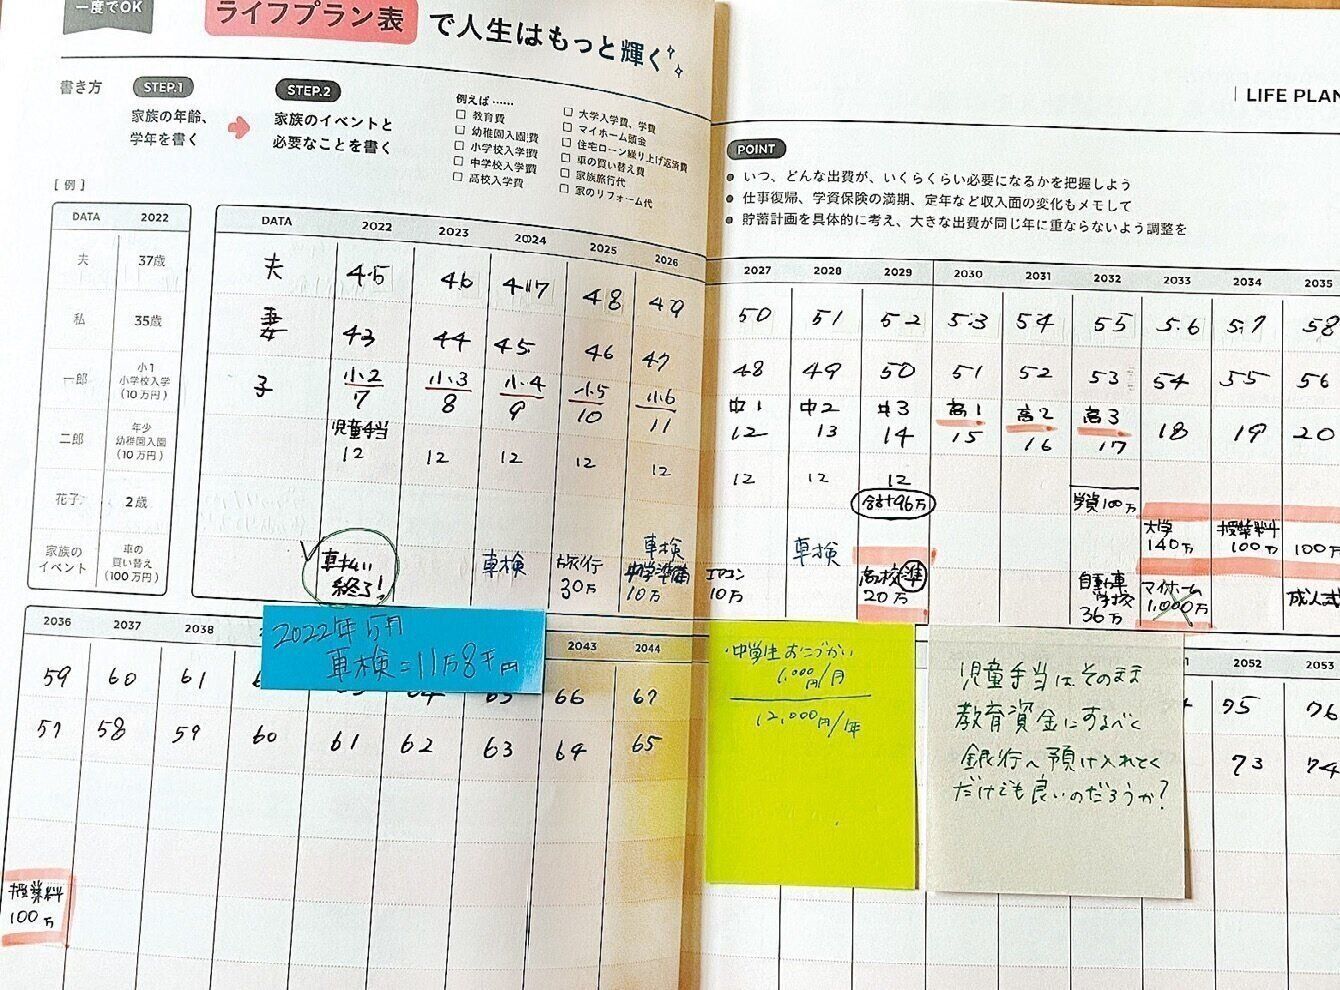 一度でOK
ライフプラン表 で人生はもっと輝く
書き方
STEP.1
家族の年齢、
学年を書く
STEP.2
家族のイベントと
必要なことを書く
例えば……
□ 教育費
□ 幼稚園入園費
□ 小学校入学費
□ 中学校入学費
□ 高校入学費
□ 大学入学費、学費
□ マイホーム頭金
□ 住宅ローン繰り上げ返済費
□ 車の買い替え費
□ 家族旅行代
□ 家のリフォーム代
LIFE PLAN
POINT
● いつ、どんな出費が、いくらくらい必要になるかを把握しよう
● 仕事復帰、学資保険の満期、定年など収入面の変化もメモして
● 貯蓄計画を具体的に考え、大きな出費が同じ年に重ならないよう調整を
[例]
DATA 2022
夫 37歳
私 35歳
一郎 小1
小学校入学
(10万円)
二郎 年少
幼稚園入園
(10万円)
花子 2歳
家族の
イベント
車の
買い替え
(100万円)
DATA 2022 2023 2024 2025 2026 2027 2028 2029 2030 2031 2032 2033 2034 2035
夫 45 46 47 48 49 50 51 52 53 54 55 56 57 58
妻 43 44 45 46 47 48 49 50 51 52 53 54 55 56
子 小2 小3 小4 小5 小6 中1 中2 中3 高1 高2 高3
7 8 9 10 11 12 13 14 15 16 17 18 19 20
児童手当
12 12 12 12 12 12 12 12
合計96万
学資100万
大学
140万
授業料
100万
100万
車払い
終了!
車検
旅行
30万
車検
中学準備
10万
エアコン
10万
車検
高校準
20万
自動車
学校
36万
マイホーム
1,000万
成人式
2036 2037 2038 2043 2044 2052 2053
59 60 61 66 67 75 76
57 58 59 60 61 62 63 64 65 73 74
授業料
100万
2022年5月
車検=11万8千円
・中学生おこづかい
1,000円/月
12,000円/年
児童手当はそのまま
教育資金にするべく
銀行へ預け入れとく
だけでも良いのだろうか?